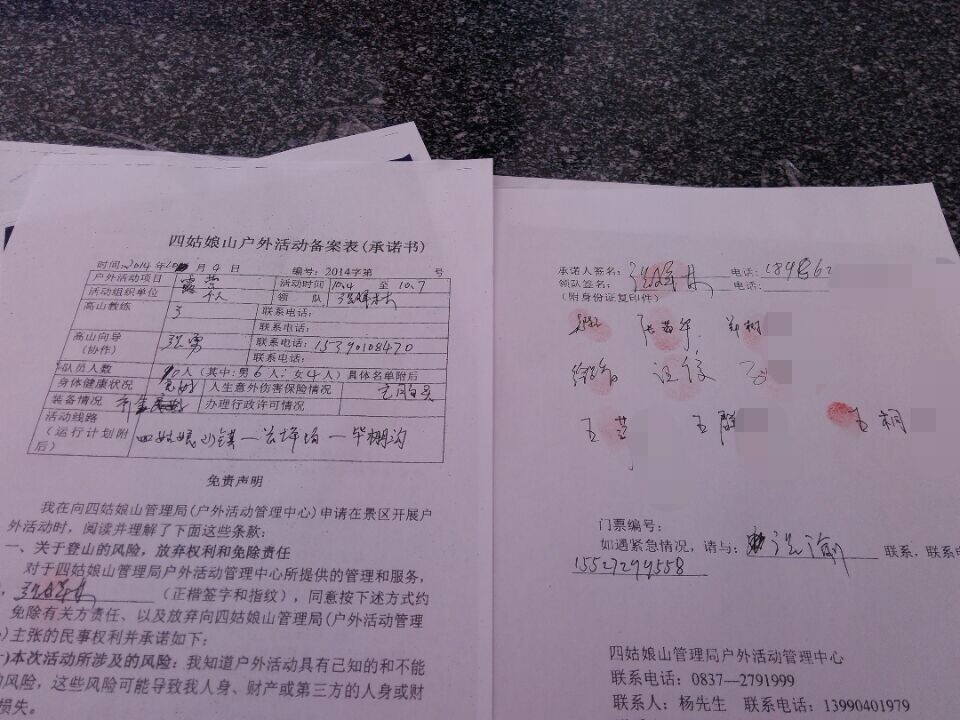 四姑娘山户外活动备案表(承诺书)
时间:2014年10月4日 编号:2014字第 号
户外活动项目 露营 活动时间 10.4 至 10.7
活动组织单位 个人 领 队
高山教练 联系电话:
联系电话:
高山向导(协作) 张勇 联系电话:15390108470
联系电话:
队员人数 10人(其中:男6人,女4人)具体名单附后
身体健康状况 良好 人生意外伤害保险情况 已购买
装备情况 办理行政许可情况
活动线路(运行计划附后) 四姑娘山镇—长坪沟—毕棚沟
免责声明
我在向四姑娘山管理局(户外活动管理中心)申请在景区开展户
外活动时,阅读并理解了下面这些条款:
一、关于登山的风险,放弃权利和免除责任
对于四姑娘山管理局户外活动管理中心所提供的管理和服务,
(正楷签字和指纹),同意按下述方式约
免除有关方责任、以及放弃向四姑娘山管理局(户外活动管理
)主张的民事权利并承诺如下:
)本次活动所涉及的风险:我知道户外活动具有已知的和不能
风险,这些风险可能导致我人身、财产或第三方的人身或财
损失。
承诺人签名: 电话:
领队签名: 电话:
(附身份证复印件)
王
门票编号:
如遇紧急情况,请与: 联系,联系电
15527299558
四姑娘山管理局户外活动管理中心
联系电话:0837—2791999
联系人:杨先生 联系电话:13990401979